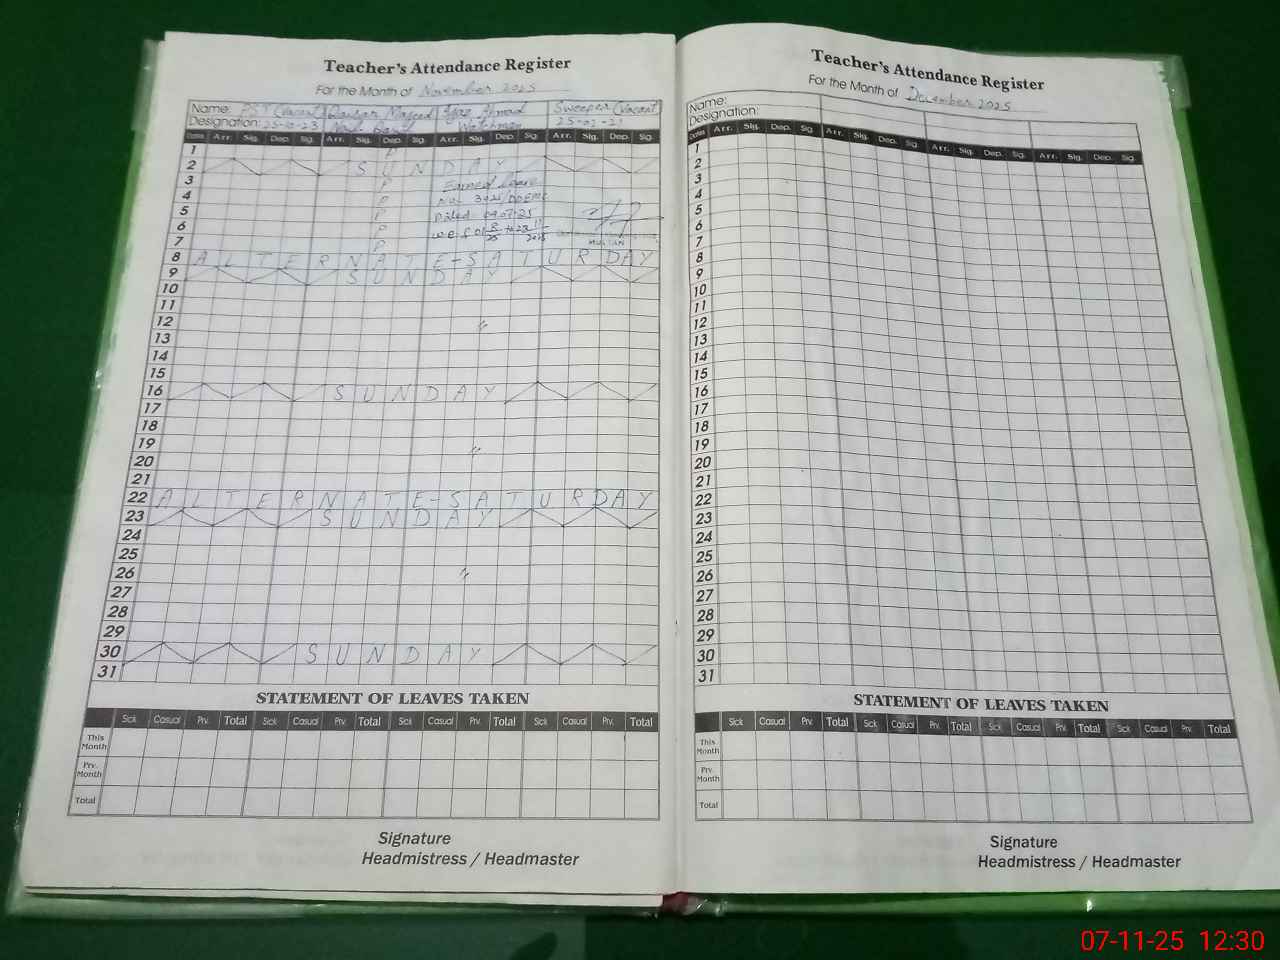 Teacher's Attendance Register
For the Month of November 2025
Name: PST (Vacant) Qaisar Majeed Ejaz Ahmad Sweeper (Vacant)
Designation: Watchman 25-02-21
Dates Arr. Sig. Dep. Sig. Arr. Sig. Dep. Sig. Arr. Sig. Dep. Sig. Arr. Sig. Dep. Sig.
1 P
2 SUNDAY
3 P Earned Leave
4 P
5 P Dated 09.07.25
6 P
7 P MULTAN
8 ALTERNATE-SATURDAY
9 SUNDAY
10
11
12 "
13
14
15
16 SUNDAY
17
18
19 "
20
21
22 ALTERNATE-SATURDAY
23 SUNDAY
24
25
26 "
27
28
29
30 SUNDAY
31
STATEMENT OF LEAVES TAKEN
Sick Casual Prv. Total Sick Casual Prv. Total Sick Casual Prv. Total Sick Casual Prv. Total
This Month
Prv. Month
Total
Signature
Headmistress / Headmaster
Teacher's Attendance Register
For the Month of December 2025
Name:
Designation:
Dates Arr. Sig. Dep. Sig. Arr. Sig. Dep. Sig. Arr. Sig. Dep. Sig. Arr. Sig. Dep. Sig.
1
2
3
4
5
6
7
8
9
10
11
12
13
14
15
16
17
18
19
20
21
22
23
24
25
26
27
28
29
30
31
STATEMENT OF LEAVES TAKEN
Sick Casual Prv. Total Sick Casual Prv. Total Sick Casual Prv. Total Sick Casual Prv. Total
This Month
Prv. Month
Total
Signature
Headmistress / Headmaster
07-11-25 12:30